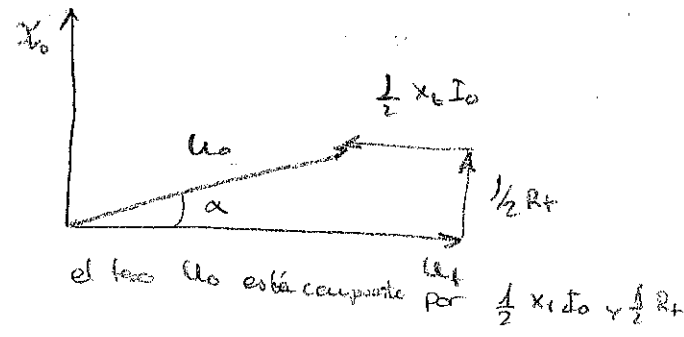 I₀
½ Xₜ I₀
U₀
½ Rₜ
α
Uₜ
el U₀ está compuesto por ½ Xₜ I₀ y ½ Rₜ